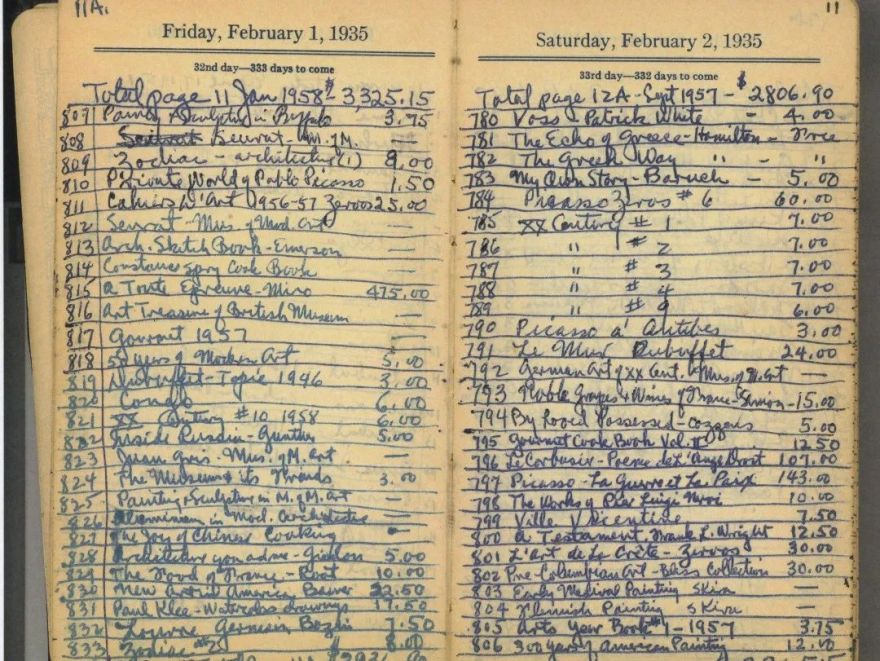 11A.
Friday, February 1, 1935
32nd day—333 days to come
Total page 11 Jan 1958 - $3,325.15
807 Paint & Sculpture in 3.75
808 Seurat - M. of M. —
809 Zodiac - architecture (1) 9.00
810 Private World of Pablo Picasso 1.50
811 Cahiers d'Art 1956-57 Zervos 25.00
812 Seurat - Mus. of Mod. Art —
813 Arch. Sketch Book - Emerson —
814 Constance Spry Cook Book —
815 A Toute Epreuve - Miro 475.00
816 Art Treasure of British Museum —
817 Gourmet 1957
818 50 years of Modern Art 5.00
819 Dubuffet - Tapie 1946 3.00
820 6.00
821 XX Century #10 1958 6.00
822 Inside Russia - Gunther 5.00
823 Juan Gris - Mus. of M. Art —
824 The Museum & its Friends 3.00
825 Painting & Sculpture in M. of M. Art —
826 Aluminium in Mod. Architecture —
827 The Joy of Chinese Cooking
828 Architecture you and me - Giedion 5.00
829 The Food of France - Root 10.00
830 New Art in America Baur 22.50
831 Paul Klee - Watercolors drawings 17.50
832 Louvre German Bazin 7.50
833 Zodiac #2 $ 8.00
11
Saturday, February 2, 1935
33rd day—332 days to come
Total page 12A - Sept 1957 - $2806.90
780 Voss - Patrick White - 4.00
781 The Echo of Greece - Hamilton - Free
782 The Greek Way " - "
783 My Own Story - Baruch - 5.00
784 Picasso Zervos #6 60.00
785 XX Century #1 7.00
786 " #2 7.00
787 " #3 7.00
788 " #4 7.00
789 " #9 6.00
790 Picasso a' Antibes 3.00
791 Le Mus Dubuffet 24.00
792 German Art of XX Cent. - Mus. of M. Art —
793 Noble Grapes & Wines of France - Simon - 15.00
794 By Love Possessed - Cozzens 5.00
795 Gourmet Cook Book Vol. II 12.50
796 Le Corbusier - Poeme de L'Angle Droit 107.00
797 Picasso - La Guerre et La Paix 143.00
798 The Works of Pier Luigi Nervi 10.00
799 Ville Vicentine 7.50
800 A Testament, Frank L. Wright 12.50
801 L'Art de La Crète - Zervos 30.00
802 Pre-Columbian Art - Bliss Collection 30.00
803 Early Medieval Painting Skira —
804 Flemish Painting Skira —
805 Arts Year Book #1 - 1957 3.75
806 300 years of American Painting 12.00